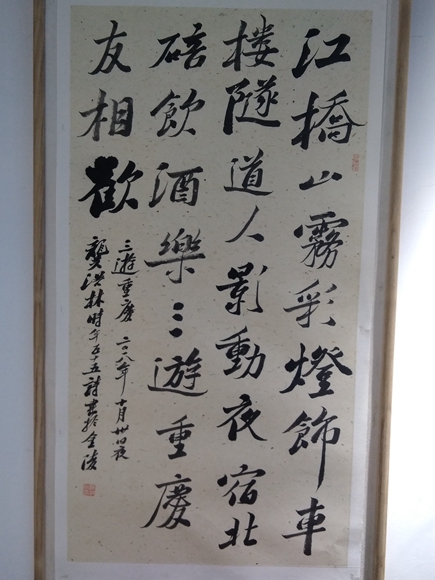 江橋山霧彩燈飾車
樓隧道人影動夜宿北
碚飲酒樂三遊重慶
友相歡
三遊重慶 二〇一八年十月卅日夜
龔洪林時年五十五詩書於金陵